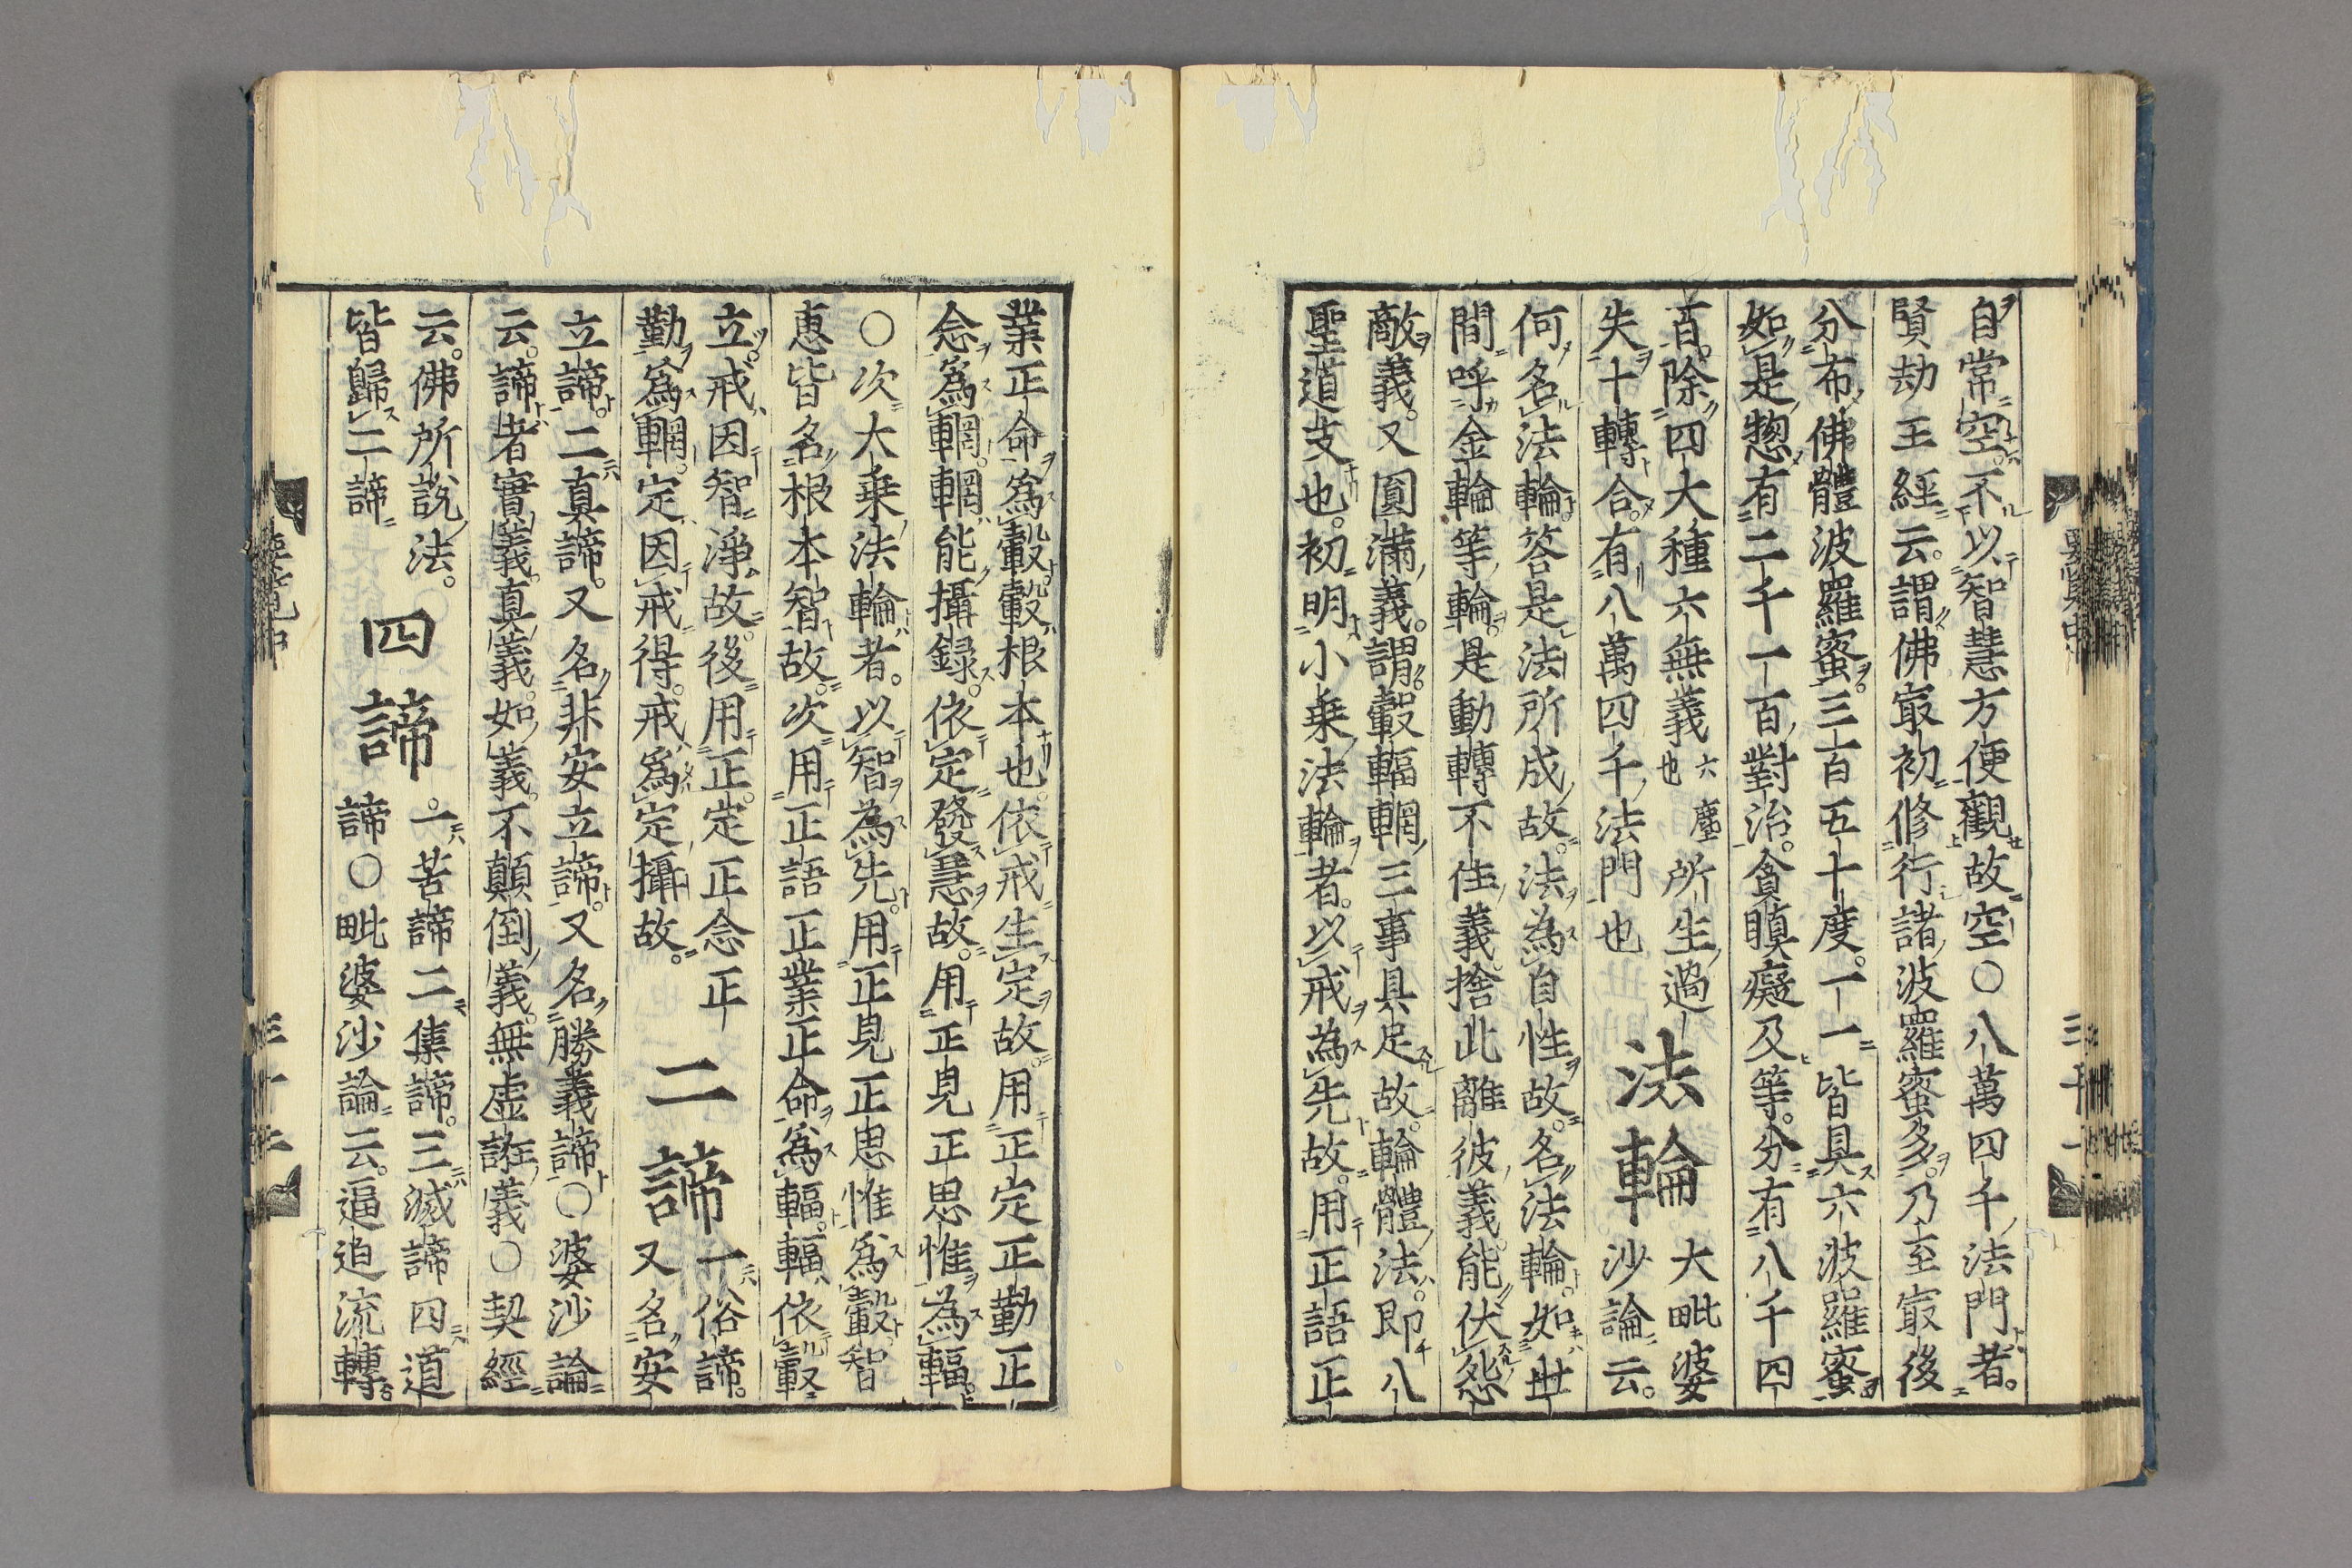 自常空。不以智慧方便觀故空〇八萬四千法門者。
賢劫王經云。謂佛㝡初修行諸波羅蜜多。乃至㝡後
分布佛體波羅蜜。三百五十度。一一皆具六波羅蜜
如是惣有二千一百對治。貪瞋癡及等。分有八千四
百。除四大種六無義六塵也所生過
失十轉合。有八萬四千法門也
法輪
大毗婆
沙論云。
何名法輪。答是法所成故。法為自性故。名法輪。如世
間呼金輪等輪。是動轉不住義。捨此離彼義。能伏怨
敵義。又圓滿義。謂轂輻輞三事具足故。輪體法。即八
聖道支也。初明小乗法輪者。以戒為先故。用正語正
業正命為轂。轂根本也。依戒生定故。用正定正勤正
念為輞。輞能攝録。依定發慧故。用正見正思惟為輻。
〇次大乗法輪者。以智為先。用正見正思惟為轂智
恵皆名根本智故。次用正語正業正命為輻。輻依轂
立。戒因智淨故。後用正定正念正
勤為輞。定因戒得。戒為定攝故。
二諦
一俗諦。
又名安
立諦。二真諦。又名非安立諦。又名勝義諦〇婆沙論
云。諦者實義。真義。如義。不顛倒義。無虛誑義〇契經
云。佛所說法。
皆歸二諦
四諦
。一苦諦二集諦。三滅諦四道
諦〇毗婆沙論云。逼迫流轉。